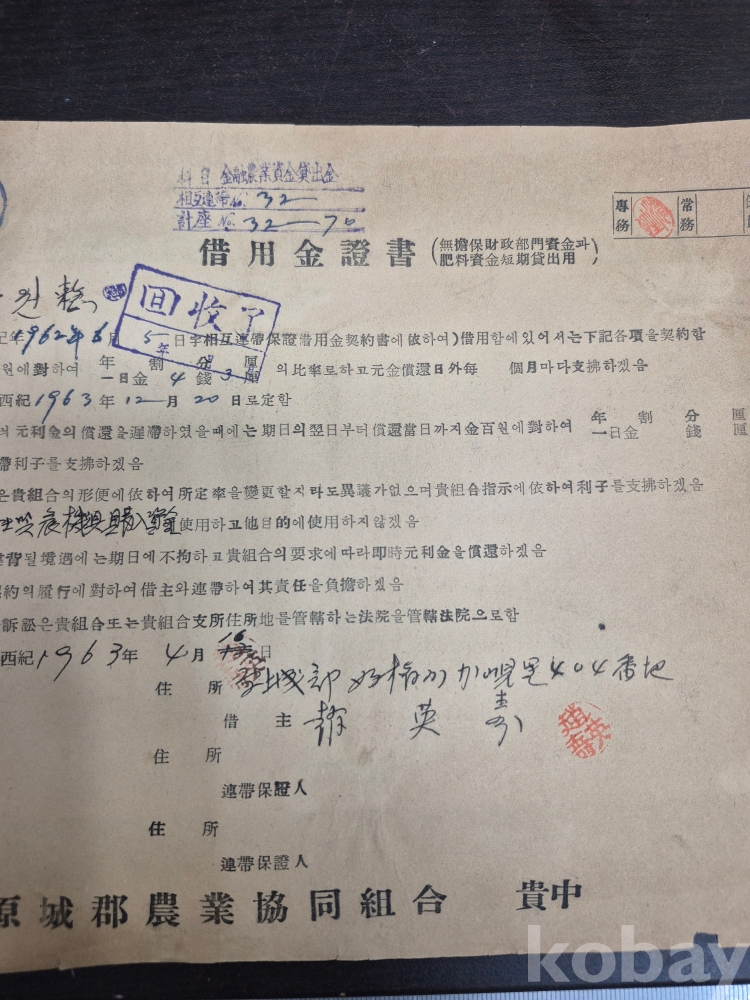 科目 金融農業資金貸出金
相互連帶No. 32
計座 No. 32—70
專務 常務
借用金證書 (無擔保財政部門資金과 肥料資金短期貸出用)
원整
回收了
年1962年6月5日字相互連帶保證借用金契約書에依하여)借用함에있어서는下記各項을契約함
원에對하여 年 割 分 厘 一日金 4 錢 3 厘 의比率로하고元金償還日外每 個月마다支拂하겠음
西紀1963年12月20日로定함
元利金의償還을遲滯하였을때에는期日의翌日부터償還當日까지金百원에對하여 年 割 分 厘 一日金 錢 厘
帶利子를支拂하겠음
은貴組合의形便에依하여所定率을變更할지라도異議가없으며貴組合指示에依하여利子를支拂하겠음
使用하고他目的에使用하지않겠음
背될境遇에는期日에不拘하고貴組合의要求에따라即時元利金을償還하겠음
約의履行에對하여借主와連帶하여其責任을負擔하겠음
訴訟은貴組合또는貴組合支所住所地를管轄하는法院을管轄法院으로함
西紀1963年4月16日
住所 城郡 好梅面 加峴里 404番地
借主 趙英壽
住所
連帶保證人
住所
連帶保證人
原城郡農業協同組合 貴中
kobay